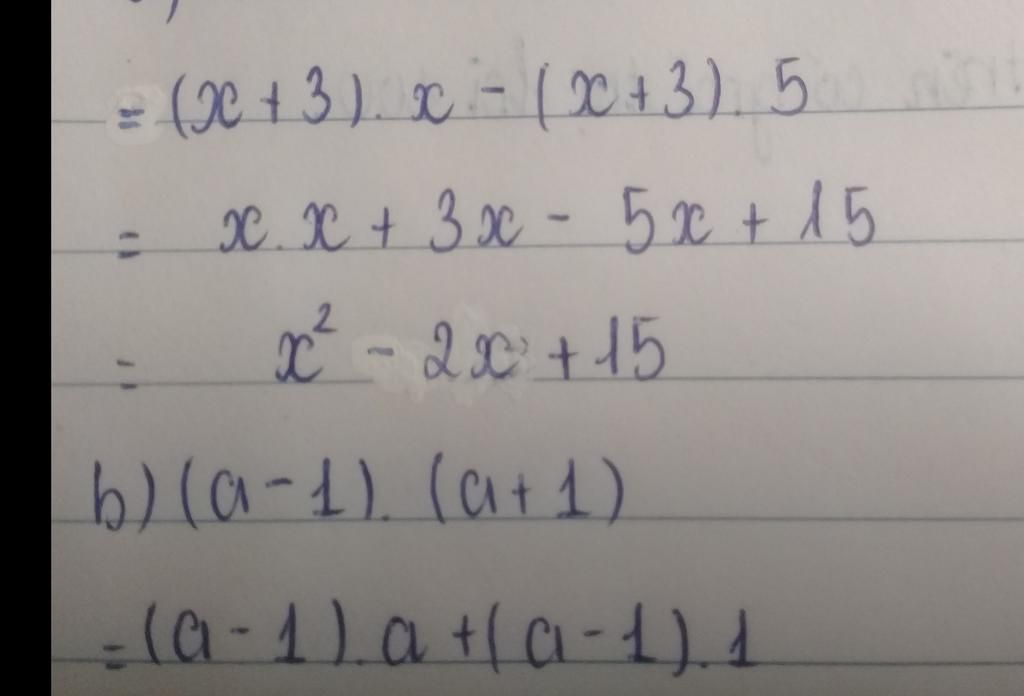 = (x + 3) . x - (x + 3) . 5
= x . x + 3x - 5x + 15
= x² - 2x + 15
b) (a - 1) . (a + 1)
= (a - 1) . a + (a - 1) . 1